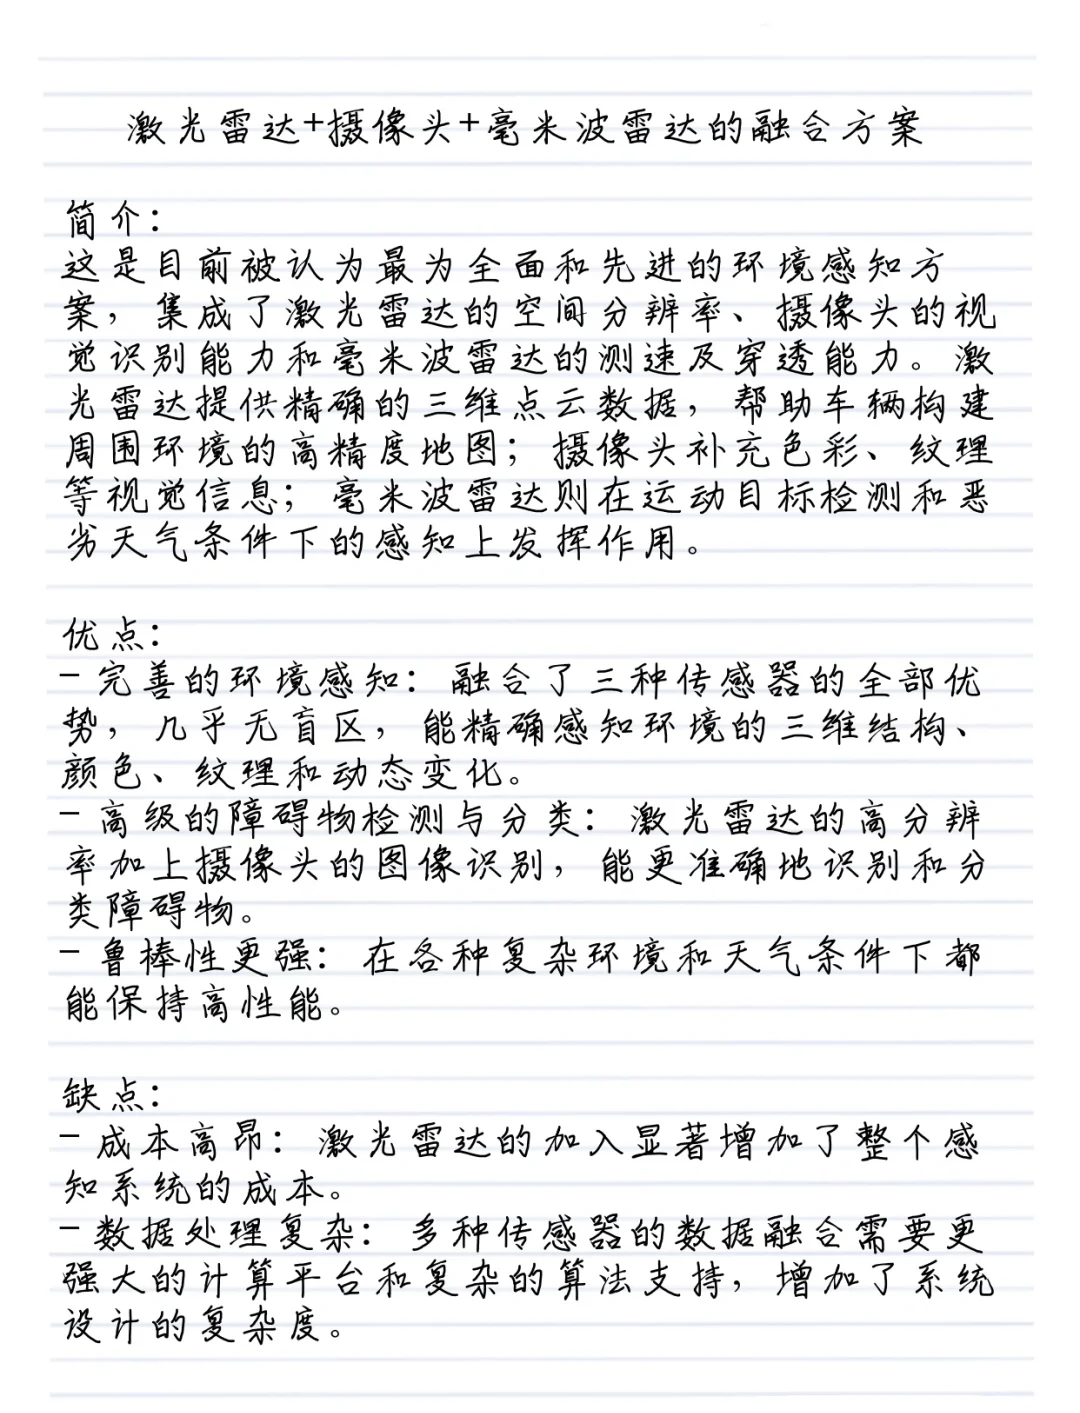 激光雷达+摄像头+毫米波雷达的融合方案
简介：
这是目前被认为最为全面和先进的环境感知方
案，集成了激光雷达的空间分辨率、摄像头的视
觉识别能力和毫米波雷达的测速及穿透能力。激
光雷达提供精确的三维点云数据，帮助车辆构建
周围环境的高精度地图；摄像头补充色彩、纹理
等视觉信息；毫米波雷达则在运动目标检测和恶
劣天气条件下的感知上发挥作用。
优点：
- 完善的环境感知：融合了三种传感器的全部优
势，几乎无盲区，能精确感知环境的三维结构、
颜色、纹理和动态变化。
- 高级的障碍物检测与分类：激光雷达的高分辨
率加上摄像头的图像识别，能更准确地识别和分
类障碍物。
- 鲁棒性更强：在各种复杂环境和天气条件下都
能保持高性能。
缺点：
- 成本高昂：激光雷达的加入显著增加了整个感
知系统的成本。
- 数据处理复杂：多种传感器的数据融合需要更
强大的计算平台和复杂的算法支持，增加了系统
设计的复杂度。